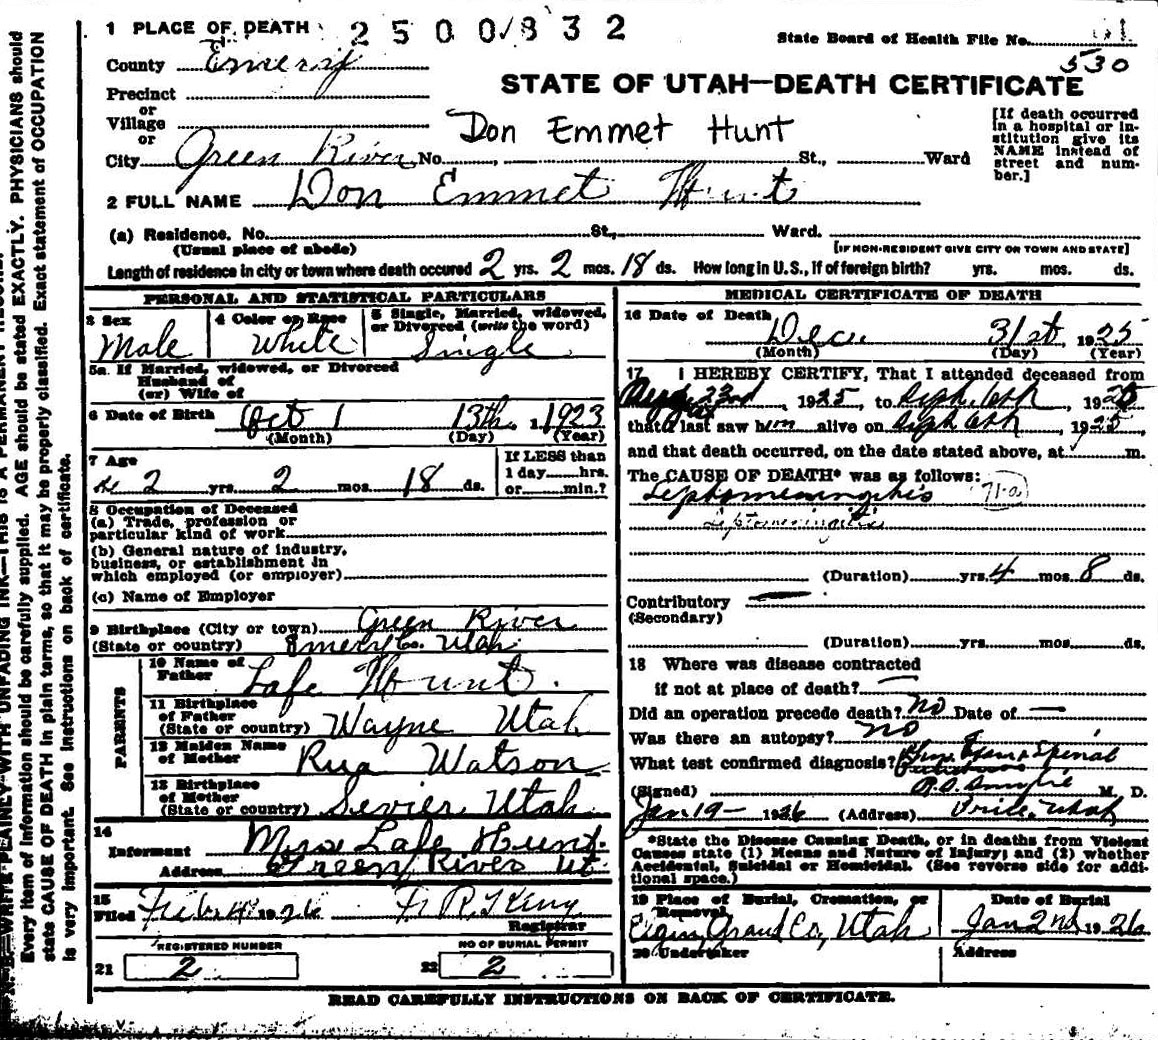 1 PLACE OF DEATH 2500832
State Board of Health File No. 61
County Emery
530
STATE OF UTAH—DEATH CERTIFICATE
Precinct
or
Village
or
City Green River No. St., Ward
Don Emmet Hunt
[If death occurred in a hospital or institution give its NAME instead of street and number.]
2 FULL NAME Don Emmet Hunt
(a) Residence. No. St., Ward.
(Usual place of abode) [IF NON-RESIDENT GIVE CITY OR TOWN AND STATE]
Length of residence in city or town where death occured 2 yrs. 2 mos. 18 ds. How long in U.S., if of foreign birth? yrs. mos. ds.
PERSONAL AND STATISTICAL PARTICULARS
3 Sex Male
4 Color or Race White
5 Single, Married, widowed, or Divorced (write the word) Single
5a. If Married, widowed, or Divorced
Husband of
(or) Wife of
6 Date of Birth Oct 13th 1923
(Month) (Day) (Year)
7 Age 2 yrs. 2 mos. 18 ds.
If LESS than
1 day hrs.
or min.?
8 Occupation of Deceased
(a) Trade, profession or
particular kind of work
(b) General nature of industry,
business, or establishment in
which employed (or employer)
(c) Name of Employer
9 Birthplace (City or town) Green River
(State or country) Emery Co. Utah
PARENTS
10 Name of Father Lafe Hunt.
11 Birthplace of Father
(State or country) Wayne Utah
12 Maiden Name of Mother Rua Watson
13 Birthplace of Mother
(State or country) Sevier Utah
14 Informant Mrs Lafe Hunt.
Address Green River Ut.
15 Filed Feb 4 1926
Registrar
REGISTERED NUMBER NO OF BURIAL PERMIT
21 2 22 2
MEDICAL CERTIFICATE OF DEATH
16 Date of Death
Dec 31st 1925
(Month) (Day) (Year)
17 I HEREBY CERTIFY, That I attended deceased from
23rd, 1925, to , 1925
that I last saw him alive on , 1925,
and that death occurred, on the date stated above, at m.
The CAUSE OF DEATH* was as follows:
Leptomeningitis 71-a
Leptomeningitis
(Duration) yrs. 4 mos. 8 ds.
Contributory
(Secondary)
(Duration) yrs. mos. ds.
18 Where was disease contracted
if not at place of death? —
Did an operation precede death? No Date of —
Was there an autopsy? No
What test confirmed diagnosis? Phys. Exam & Spinal
(Signed) M. D.
Jan 19 - 1926 (Address) Price, Utah
*State the Disease Causing Death, or in deaths from Violent
Causes state (1) Means and Nature of Injury; and (2) whether
Accidental, Suicidal or Homicidal. (See reverse side for additional space.)
19 Place of Burial, Cremation, or Removal
Elgin, Grand Co, Utah
Date of Burial
Jan 2nd 1926
20 Undertaker Address
READ CAREFULLY INSTRUCTIONS ON BACK OF CERTIFICATE.
N. B.—WRITE PLAINLY WITH UNFADING INK—THIS IS A PERMANENT RECORD.
Every item of information should be carefully supplied. AGE should be stated EXACTLY. PHYSICIANS should
state CAUSE OF DEATH in plain terms, so that it may be properly classified. Exact statement of OCCUPATION
is very important. See instructions on back of certificate.